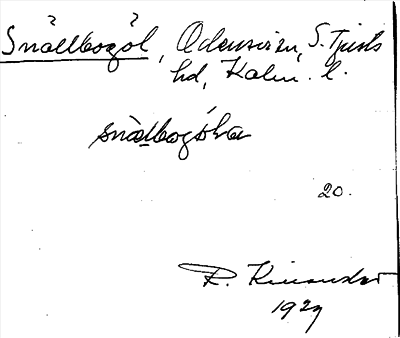 Snällbogöl, Odensvi sn, S. Tjusts
hd, Kalm. l.
snälbogshɷlα
20.
R. Kinander
1927